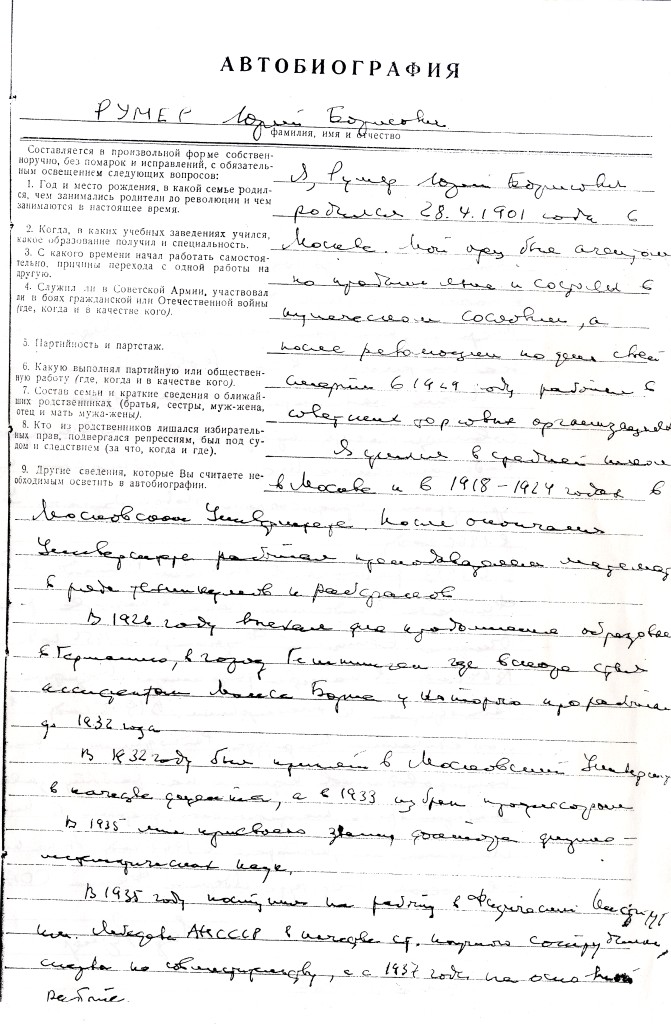 АВТОБИОГРАФИЯ
РУМЕР Юрий Борисович
фамилия, имя и отчество
Составляется в произвольной форме собствен-
норучно, без помарок и исправлений, с обязатель-
ным освещением следующих вопросов:
1. Год и место рождения, в какой семье родил-
ся, чем занимались родители до революции и чем
занимаются в настоящее время.
2. Когда, в каких учебных заведениях учился,
какое образование получил и специальность.
3. С какого времени начал работать самостоя-
тельно, причины перехода с одной работы на
другую.
4. Служил ли в Советской Армии, участвовал
ли в боях гражданской или Отечественной войны
(где, когда и в качестве кого).
5. Партийность и партстаж.
6. Какую выполнял партийную или обществен-
ную работу (где, когда и в качестве кого).
7. Состав семьи и краткие сведения о ближай-
ших родственниках (братья, сестры, муж-жена,
отец и мать мужа-жены).
8. Кто из родственников лишался избиратель-
ных прав, подвергался репрессиям, был под су-
дом и следствием (за что, когда и где).
9. Другие сведения, которые Вы считаете не-
обходимым осветить в автобиографии.
Я, Румер Юрий Борисович
родился 28.4.1901 года в
Москве. Мой отец был агентом
по и состоял в
купеческом сословии, а
после революции до дня своей
смерти в году работал в
советских торговых организациях
Я учился в средней школе
в Москве и в 1918-1924 годах в
Московском Университете. После окончания
Университета работал преподавателем
в ряде техникумов и рабфаков
В 1926 году выехал для продолжения
в Германию, в город Геттинген где вскоре стал
ассистентом Макса Борна у которого проработал
до 1932 года
В 1932 году был принят в Московский
в качестве доцента, а в 1933 избран профессором
В 1935 мне присвоено звание доктора физико-
математических наук.
В 1935 году поступил на работу в Физический Институт
им. Лебедева АН СССР в качестве ст. научного сотрудника,
сперва по совместительству, а с 1937 года на основной
работе.